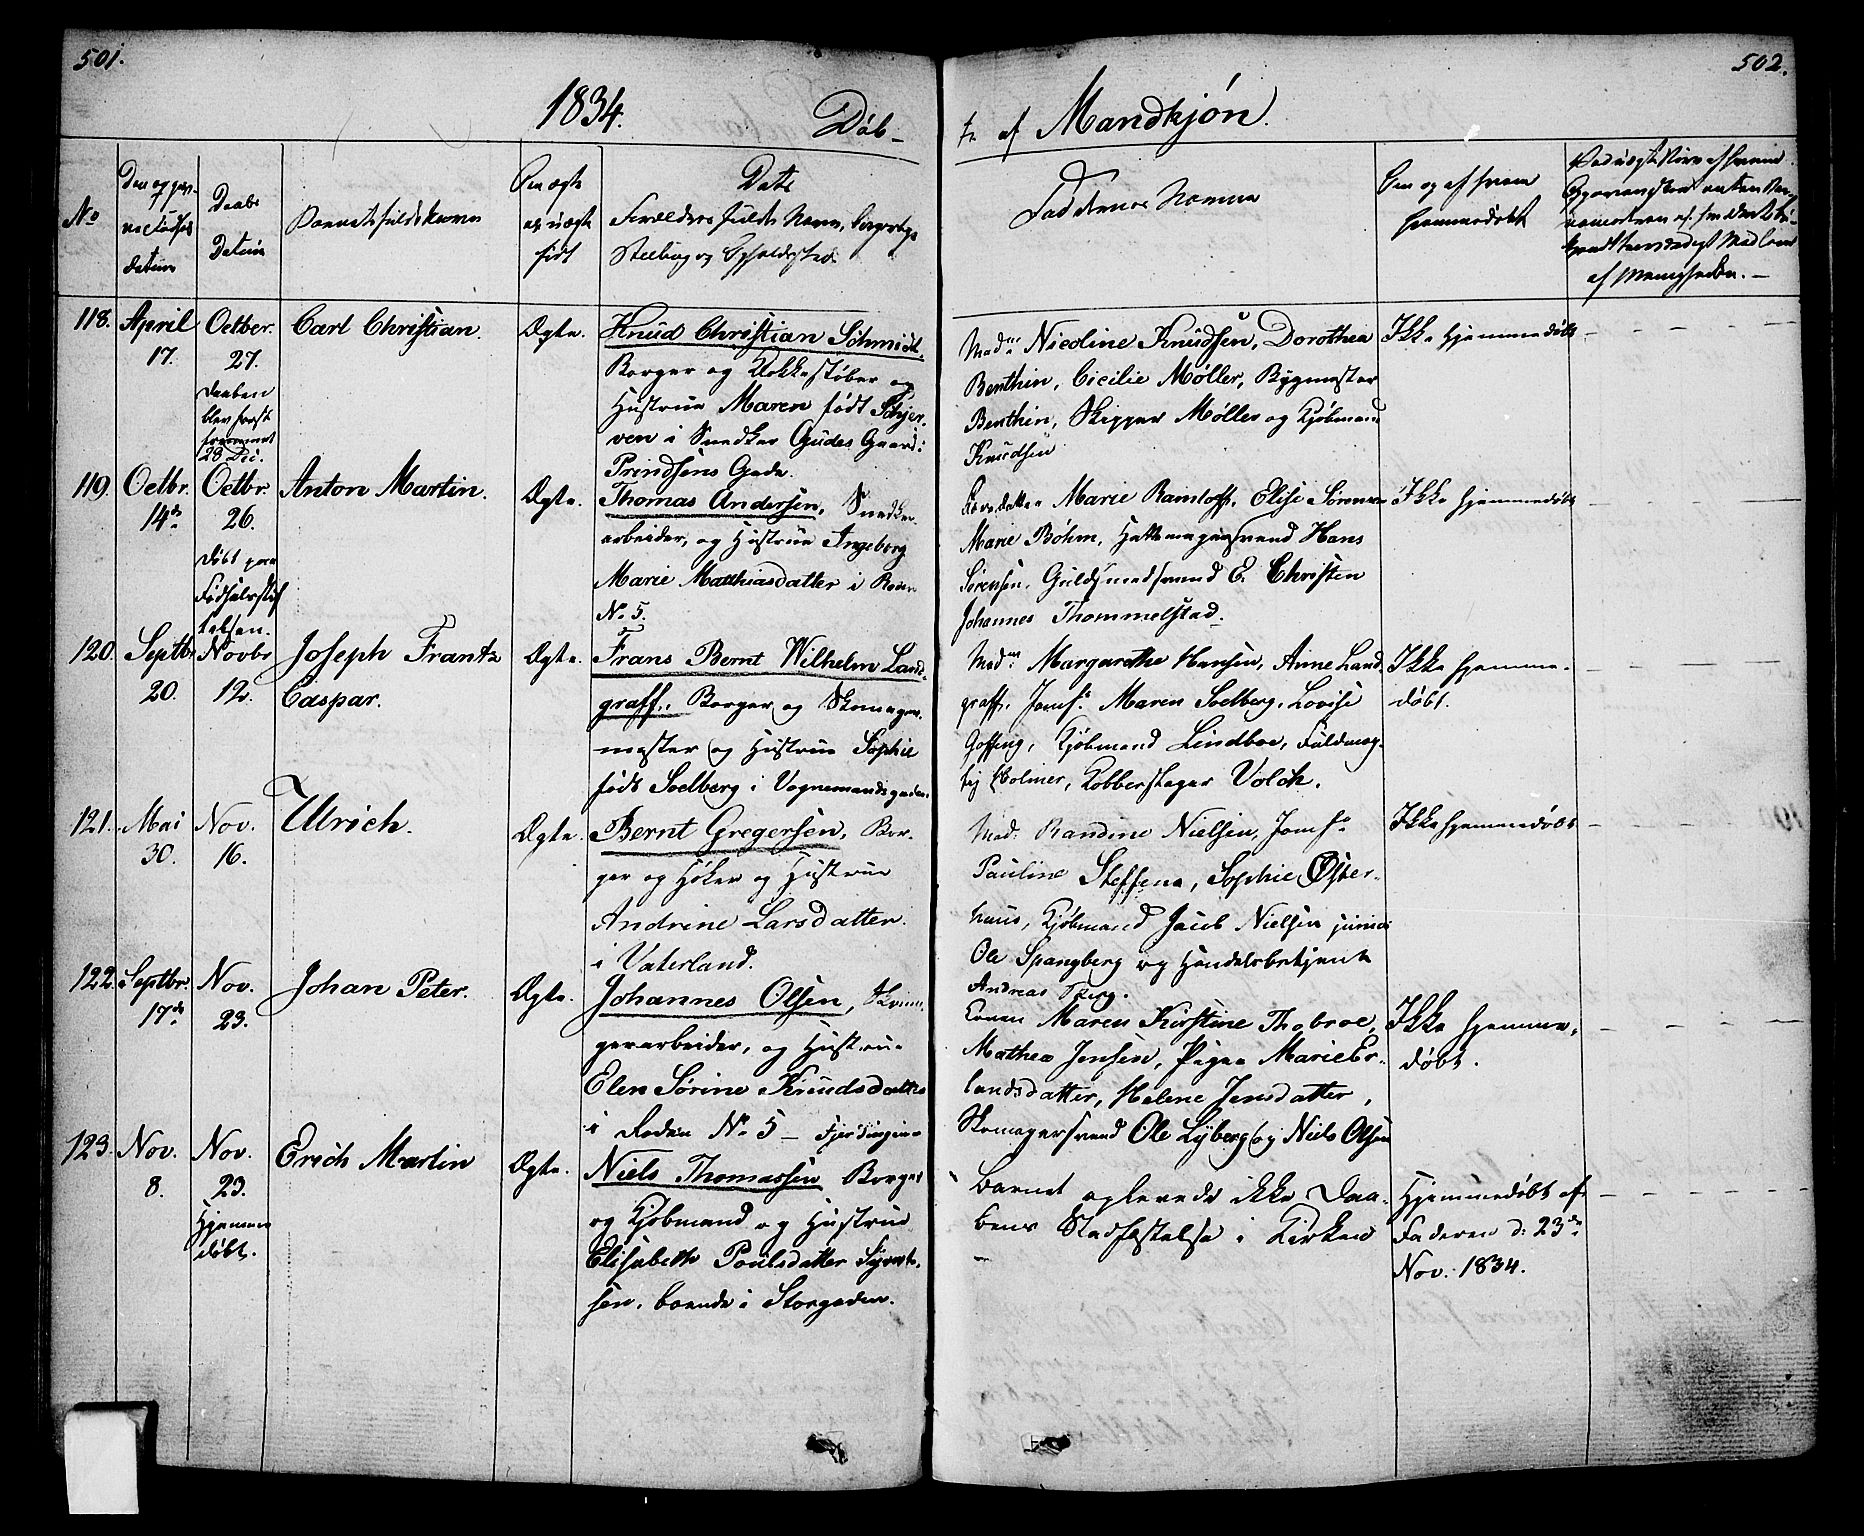 501.
502.
1834.
Døb-
te af Mandkjøn.
No
Daabs
Datum
Barnets fulde Navn
Om ægte
er uægte
født
Dets
Forældres fulde Navn, Borgerlige
Stilling og Opholdssted.
Faddernes Navne
Om og af hvem
hjemmedøbt
af Menigheden. —
118. April
17.
Octber.
27.
Daaben
blev først
fremmet
28 Dec.
Carl Christian.
Ægte.
Knud Christian Schmidt,
Borger og Klokkestøber og
Hustrue Maren født Schjer-
ven i Snedker Gudes Gaard i
Prindsens Gade.
Mad. Nicoline Knudsen, Dorothea
Benthin, Cicilie Møller, Bygmester
Benthin, Skipper Møller og Kjøbmand
Knudsen
Ikke hjemmedøbt
119. Octbr.
14de
Octbr.
26.
Døbt paa
Fødselsstif
telsen.
Anton Martin.
Ægte.
Thomas Andersen, Snedker
arbeider, og Hustrue Ingeborg
Marie Matthiasdatter i Roden
No 5.
Marie Ramloff, Elise Sørensen
Marie Bøhm, Hattemagersvend Hans
Sørensen, Guldsmedsvend E. Christen
Johannes Thommelstad.
Ikke hjemmedøbt
120. Septbr
20.
Novbr
12.
Joseph Frantz
Caspar.
Ægte.
Frans Bernt Wilhelm Land-
graff, Borger og Skomager-
mester og Hustrue Sophie
født Soelberg i Vognmandsgaden
Mad. Margarethe Hansen, Anne Land-
graff, Jomf. Maren Soelberg, Lovise
Goffeng, Kjøbmand Lindboe, Fuldmæg-
tig Holmer, Kobberslager Volck.
Ikke hjemme-
døbt.
121. Mai
30.
Nov.
16.
Ulrich.
Ægte.
Bernt Gregersen, Bor-
ger og Høker og Hustrue
Andrine Larsdatter
i Vaterland.
Mad. Randine Nielsen, Jomf.
Pauline Steffens, Sophie Øster-
huus, Kjøbmand Jacob Nielsen junior
Ole Spangberg og Handelsbetjent
Andreas Berg.
Ikke hjemmedøbt
122. Septbr.
17de
Nov.
23.
Johan Peter.
Ægte.
Johannes Olsen,
garvarbeider, og Hustrue
Elen Sørine Knudsdatter
i Roden No 5 — Fjerdingen
Konen Maren Kirstine Thobroe,
Mathea Jensen, Pigen Marie Er-
landsdatter, Helene Jensdatter,
Skomagersvend Ole Lyberg og Niels Olsen
Ikke hjemme-
døbt.
123. Nov.
8.
Nov.
23.
Hjemme
døbt.
Erich Martin
Ægte.
Niels Thomassen Borger
og Kjøbmand og Hustrue
Elisabeth Poulsdatter Syverts-
sen, boende i Storgaden.
Barnet oplevede ikke Daa-
bens Stadfæstelse i Kirken
Hjemmedøbt af
Faderen d: 23de
Nov. 1834.